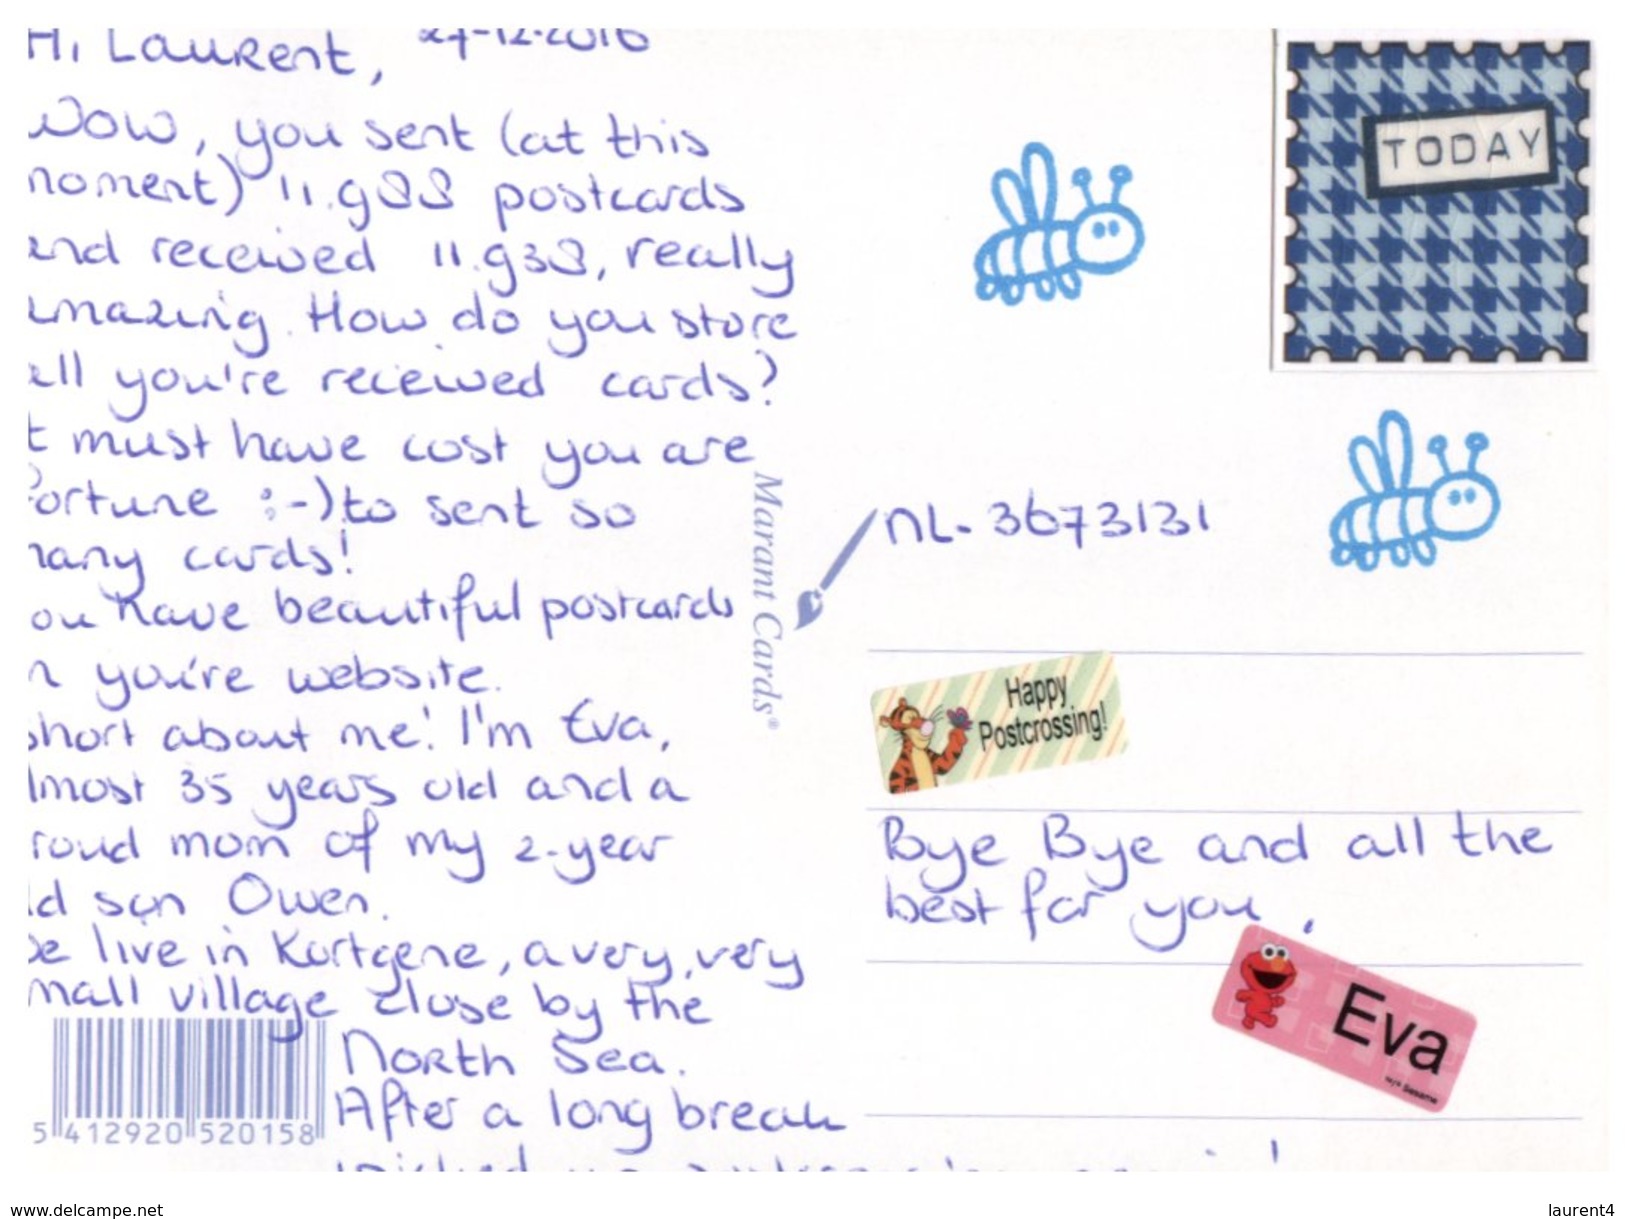 Hi Laurent, 27-12-2016
Wow, you sent (at this
moment) 11.988 postcards
and received 11.938, really
amazing. How do you store
all you're received cards?
t must have cost you are
Fortune :-) to sent so
many cards!
ou have beautiful postcards
n you're website.
short about me! I'm Eva,
lmost 35 years old and a
roud mom of my 2-year
ld son Owen.
We live in Kortgene, a very, very
mall village close by the
North Sea.
After a long break
5 412920 520158
Marant Cards®
TODAY
NL-3673131
Happy
Postcrossing!
Bye Bye and all the
best for you,
Eva
www.delcampe.net
laurent4